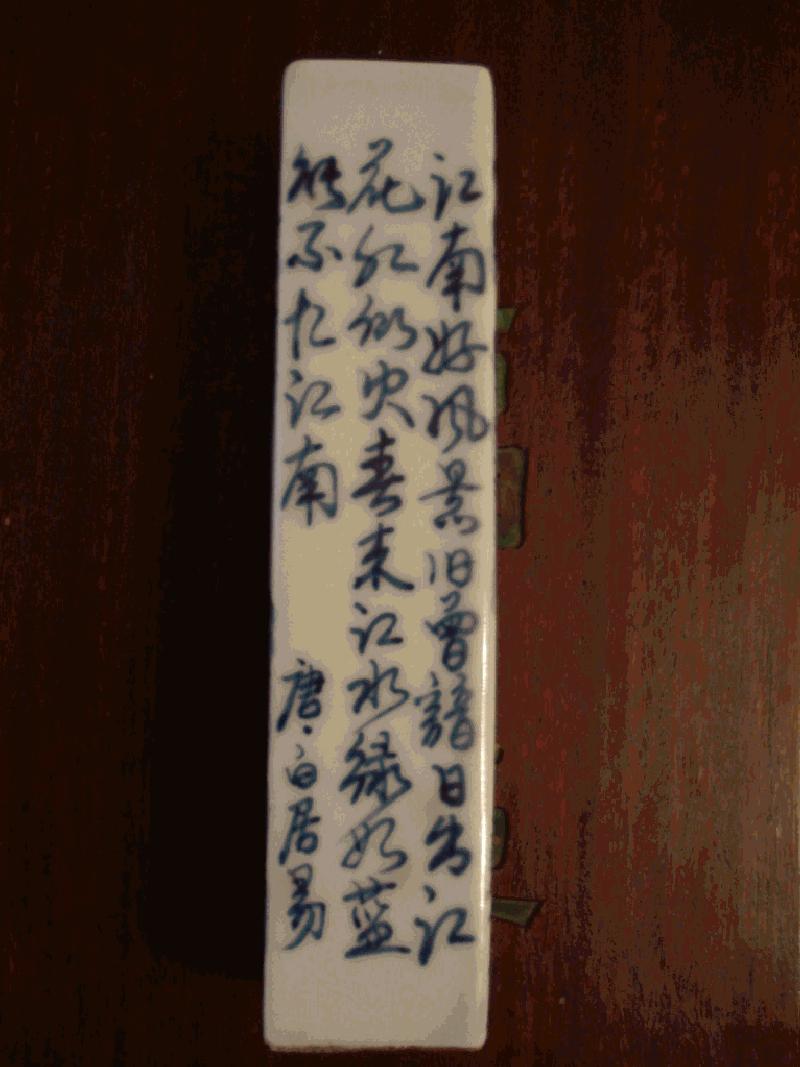 江南好风景旧曾谙日出江
花红似火春来江水绿如蓝
能不忆江南
唐·白居易